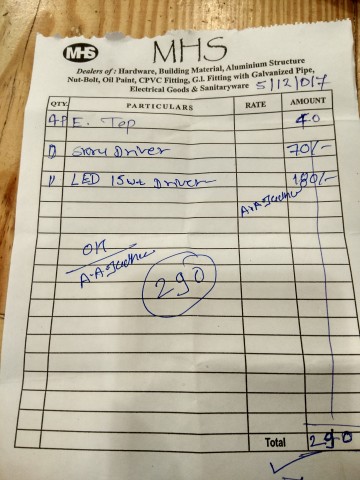 MHS
MHS
Dealers of : Hardware, Building Material, Aluminium Structure
Nut-Bolt, Oil Paint, CPVC Fitting, G.I. Fitting with Galvanized Pipe,
Electrical Goods & Sanitaryware 5/12/017
QTY. PARTICULARS RATE AMOUNT
4P E. Tep 40
Driver 70/-
LED 15wt Driver 180/-
OK
290
Total 290